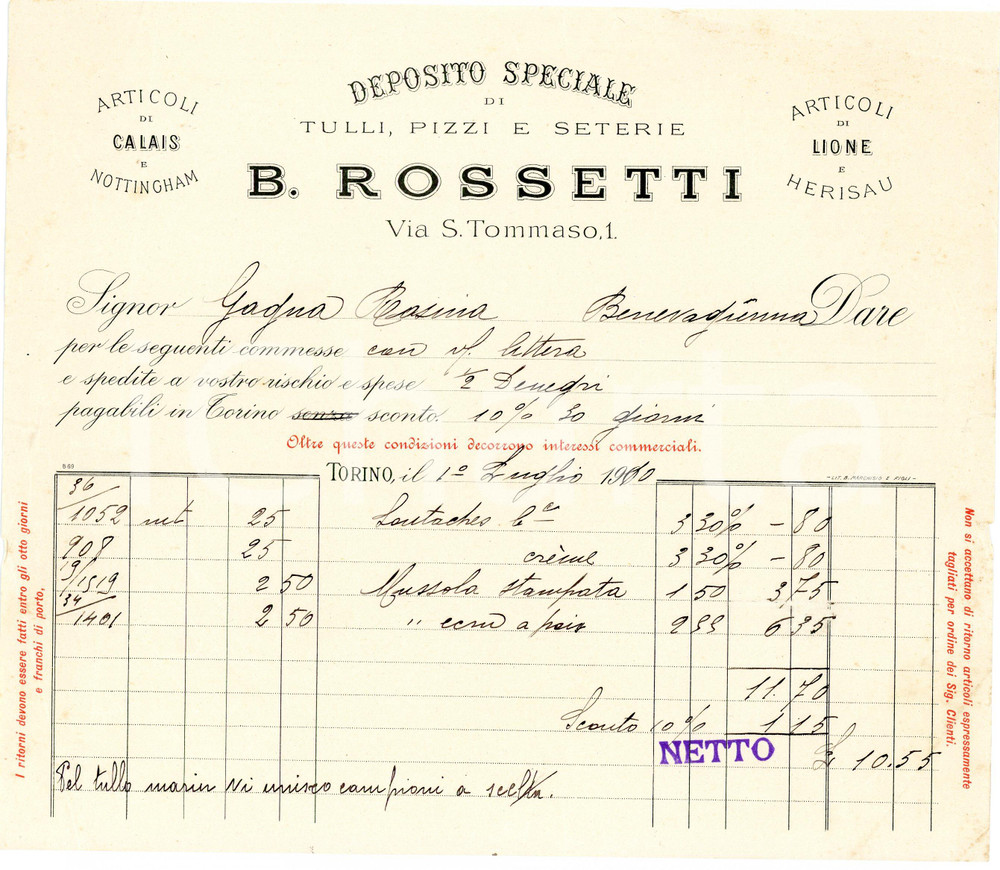 DEPOSITO SPECIALE
DI
TULLI, PIZZI E SETERIE
B. ROSSETTI
Via S. Tommaso, 1.
ARTICOLI
DI
CALAIS
E
NOTTINGHAM
ARTICOLI
DI
LIONE
E
HERISAU
Signor Gagna Rosina Benevagienna Dare
per le seguenti commesse con vs. lettera
e spedite a vostro rischio e spese 1/2 Denegri
pagabili in Torino senza sconto. 10% 30 giorni
Oltre queste condizioni decorrono interessi commerciali.
TORINO, il 1º Luglio 1910
36/1052 mt 25 Soutaches 3 30% - 80
908 25 crème 3 30% - 80
19/1519 2 50 Mussola stampata 1 50 3 75
34/1401 2 50 " ecru a pois 6 35
11. 70
Sconto 10% 1 15
NETTO
10.55
Pel tullo marin vi unisco campioni a scelta.
I ritorni devono essere fatti entro gli otto giorni
e franchi di porto,
Non si accettano di ritorno articoli espressamente
tagliati per ordine dei Sig. Clienti.